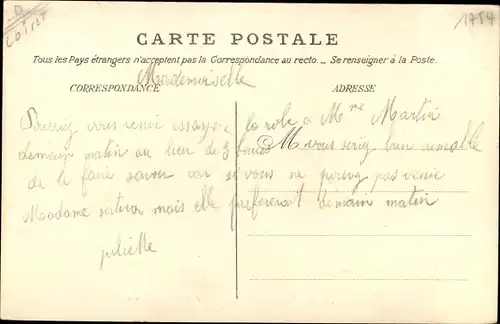 D
Loiret
1754
CARTE POSTALE
Tous les Pays étrangers n'acceptent pas la Correspondance au recto. _ Se renseigner à la Poste.
CORRESPONDANCE
ADRESSE
Mademoiselle
vous venir essayer la robe a Mme Martin
demain matin au lieu de 3 heures M vous seriez bien aimable
de le faire savoir car si vous ne pas venir
Madame mais elle prefererait demain matin
juliette